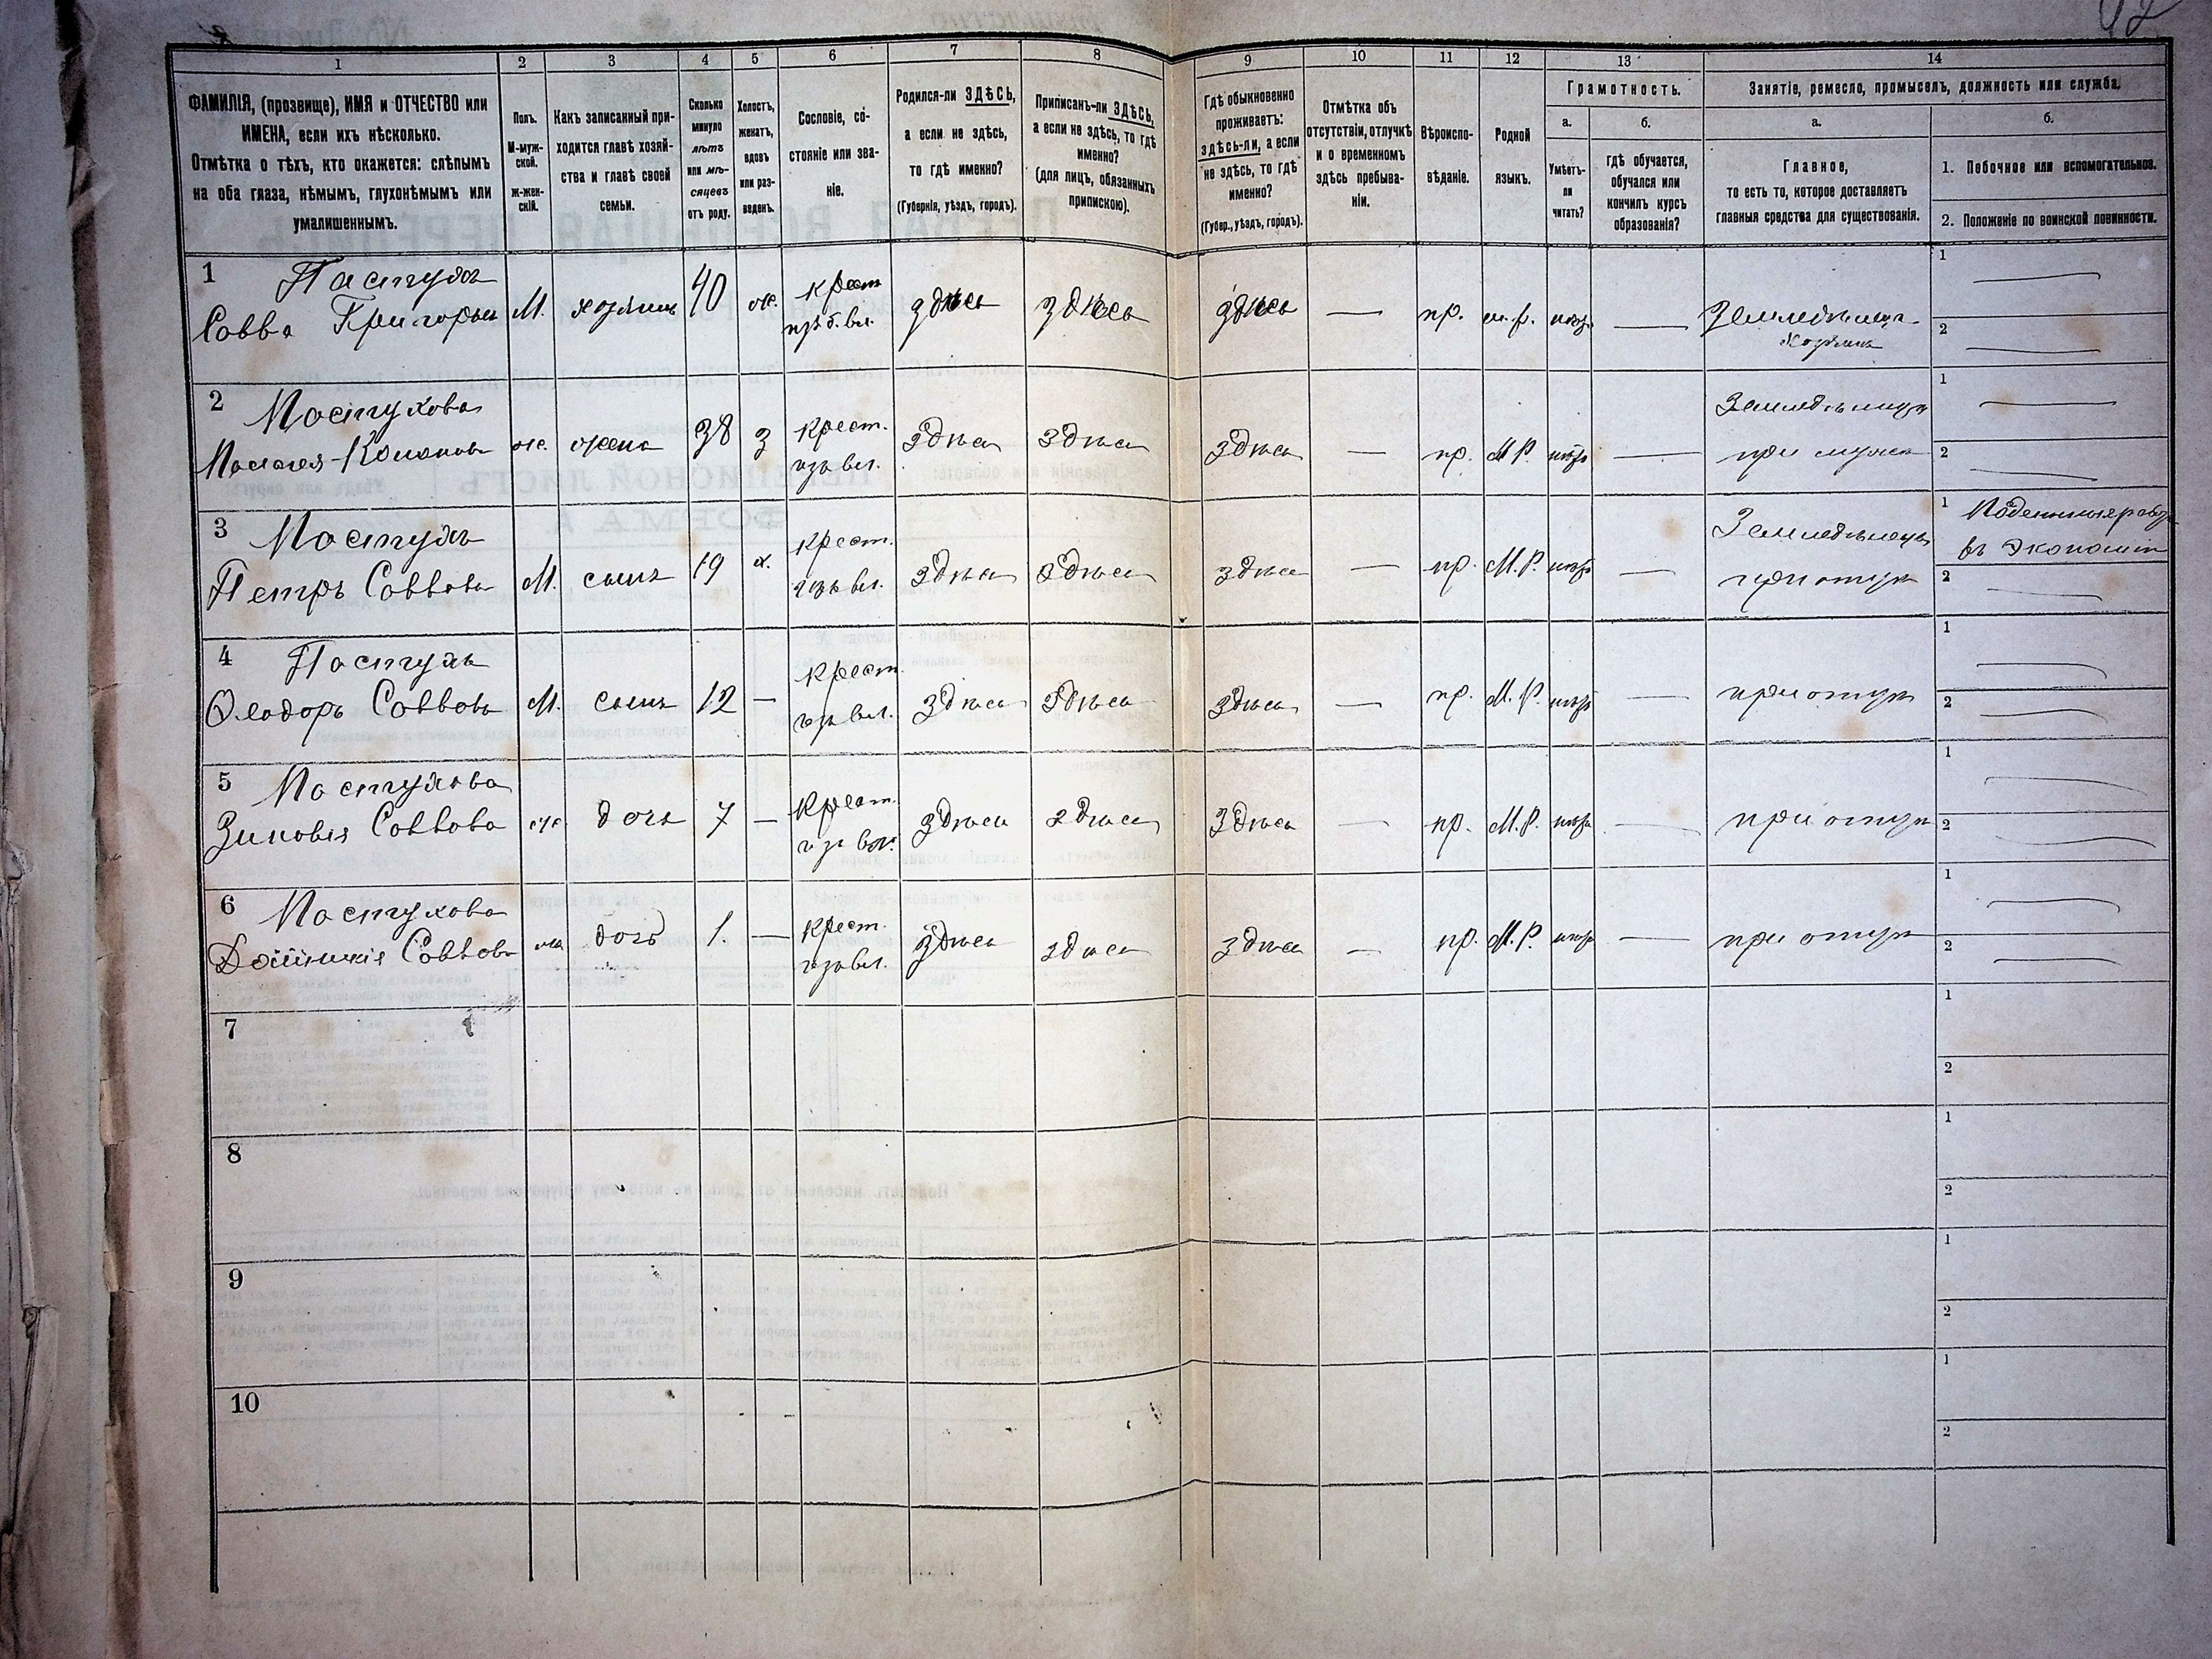 1 2 3 4 5 6 7 8 9 10 11 12 13 14
ФАМИЛІЯ, (прозвище), ИМЯ и ОТЧЕСТВО или
ИМЕНА, если ихъ нѣсколько.
Отмѣтка о тѣхъ, кто окажется: слѣпымъ
на оба глаза, нѣмымъ, глухонѣмымъ или
умалишеннымъ.
Полъ.
М-муж-
ской.
ж-жен-
скій.
Какъ записанный при-
ходится главѣ хозяй-
ства и главѣ своей
семьи.
Сколько
минуло
лѣтъ
или мѣ-
сяцевъ
отъ роду.
Холостъ,
женатъ,
вдовъ
или раз-
веденъ.
Сословіе, со-
стояніе или зва-
ніе.
Родился-ли ЗДѢСЬ,
а если не здѣсь,
то гдѣ именно?
(Губернія, уѣздъ, городъ).
Приписанъ-ли ЗДѢСЬ,
а если не здѣсь, то гдѣ
именно?
(для лицъ, обязанныхъ
припискою).
Гдѣ обыкновенно
проживаетъ:
здѣсь-ли, а если
не здѣсь, то гдѣ
именно?
(Губер., уѣздъ, городъ).
Отмѣтка объ
отсутствіи, отлучкѣ
и о временномъ
здѣсь пребыва-
ніи.
Вѣроиспо-
вѣданіе.
Родной
языкъ.
Грамотность.
а.
Умѣетъ-
ли
читать?
б.
гдѣ обучается,
обучался или
кончилъ курсъ
образованія?
Занятіе, ремесло, промыселъ, должность или служба.
а.
Главное,
то есть то, которое доставляетъ
главныя средства для существованія.
б.
1. Побочное или вспомогательное.
2. Положеніе по воинской повинности.
1 Пастухъ
Савва Григорьев М. хозяинъ 40 ж. крест
изъ б. вл. здѣсь здѣсь здѣсь — пр. м. р. нѣтъ — Земледѣлецъ
хозяинъ
1 —
2 —
2 Пастухова
ж. жена 38 з крест.
изъ вл. здѣсь здѣсь здѣсь — пр. М. Р. нѣтъ — Земледѣлица
при мужѣ
1 —
2 —
3 Пастухъ
Петръ Саввовъ М. сынъ 19 х. крест.
изъ вл. здѣсь здѣсь здѣсь — пр. М. Р. нѣтъ — Земледѣлецъ
при отцѣ
1 въ экономіи
2 —
4 Пастухъ
Ѳеодоръ Саввовъ М. сынъ 12 — крест.
изъ вл. здѣсь здѣсь здѣсь — пр. М. Р. нѣтъ — при отцѣ
1 —
2 —
5 Пастухова
Зиновія Саввова ж. дочь 7 — крест.
изъ вл. здѣсь здѣсь здѣсь — пр. М. Р. нѣтъ — при отцѣ
1 —
2 —
6 Пастухова
Саввова ж. дочь 1. — крест.
изъ вл. здѣсь здѣсь здѣсь — пр. М. Р. нѣтъ — при отцѣ
1 —
2 —
7
1
2
8
1
2
9
1
2
10
1
2